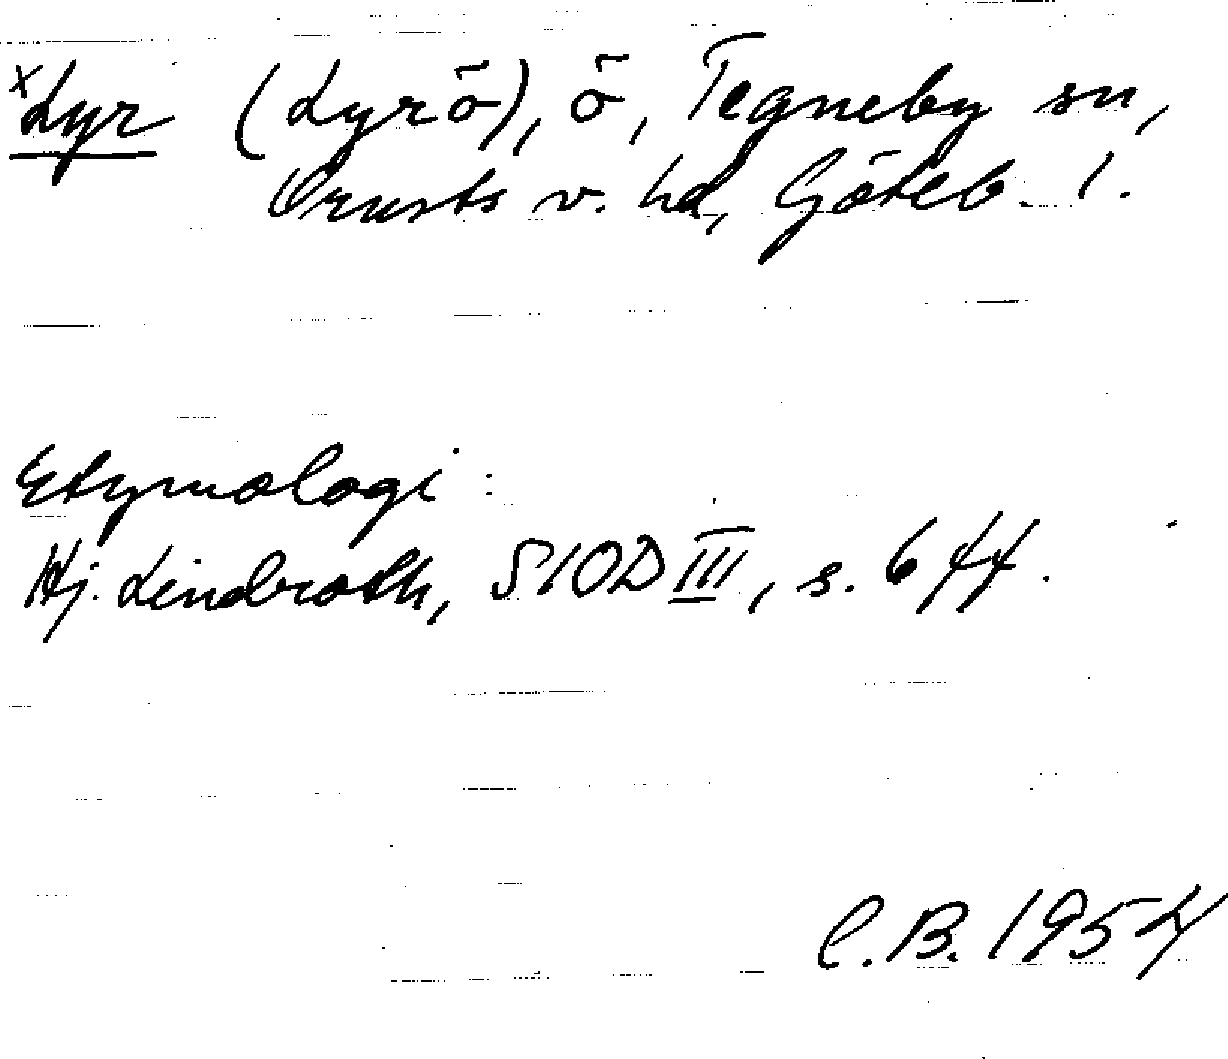 xLyr (Lyrö), ö, Tegneby sn,
Orusts v. hd, Göteb. l.
Etymologi:
Hj. Lindroth, SIOD III, s. 6 ff.
C.B. 1954